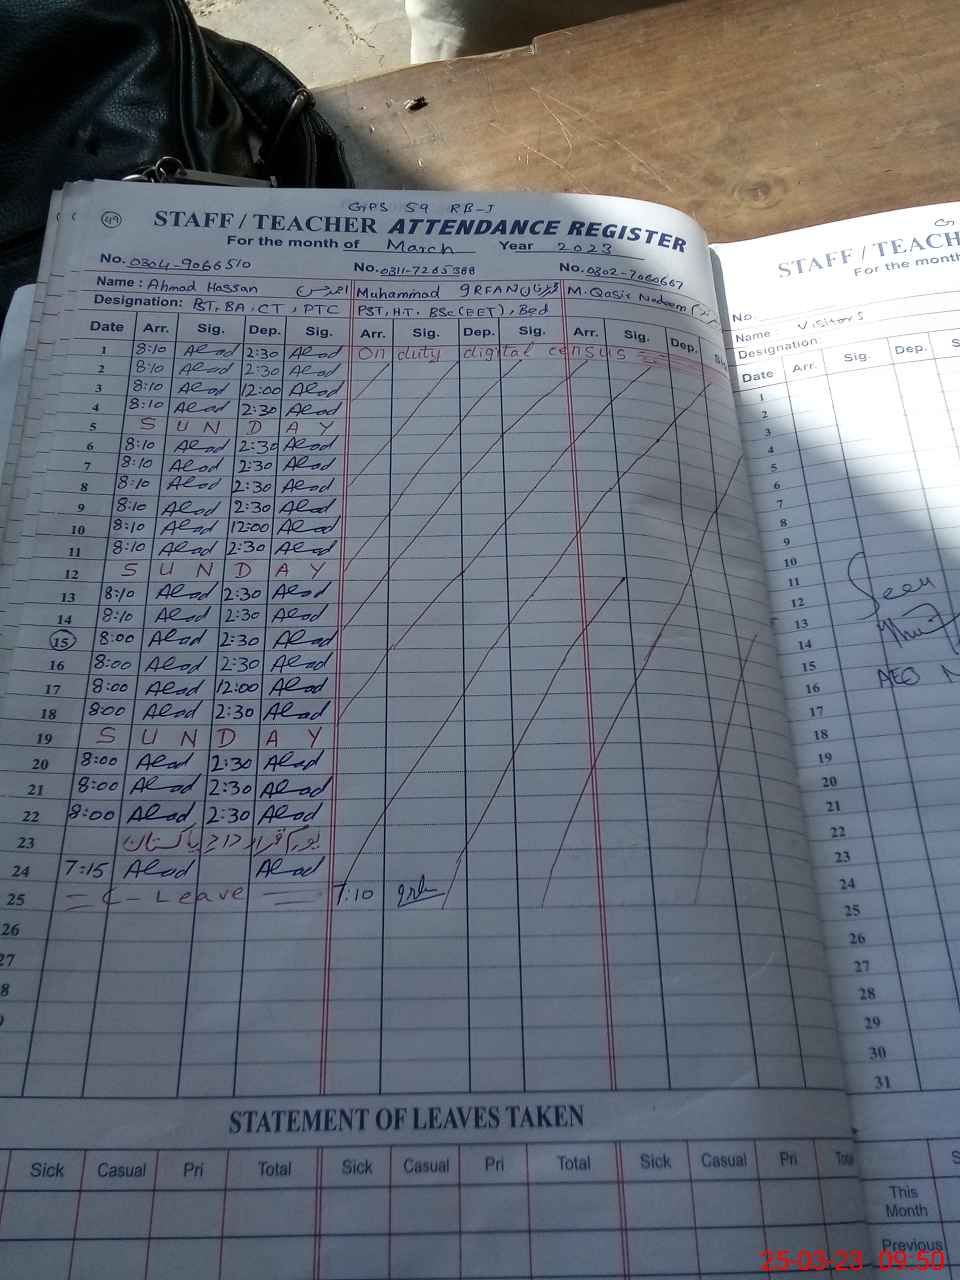 GPS 59 RB-J
49 STAFF / TEACHER ATTENDANCE REGISTER
For the month of March Year 2023
No. 0304-9066510 No. 0311-7265388 No. 0302-7060667
Name : Ahmad Hassan Muhammad IRFAN M. Qasir Nadeem
Designation: PST, BA, CT, PTC PST, H.T. BSc (EET), Bed
Date Arr. Sig. Dep. Sig. Arr. Sig. Dep. Sig. Arr. Sig. Dep.
1 8:10 Ahmad 2:30 Ahmad On duty digital census
2 8:10 Ahmad 2:30 Ahmad
3 8:10 Ahmad 12:00 Ahmad
4 8:10 Ahmad 2:30 Ahmad
5 S U N D A Y
6 8:10 Ahmad 2:30 Ahmad
7 8:10 Ahmad 2:30 Ahmad
8 8:10 Ahmad 2:30 Ahmad
9 8:10 Ahmad 2:30 Ahmad
10 8:10 Ahmad 12:00 Ahmad
11 8:10 Ahmad 2:30 Ahmad
12 S U N D A Y
13 8:10 Ahmad 2:30 Ahmad
14 8:10 Ahmad 2:30 Ahmad
15 8:00 Ahmad 2:30 Ahmad
16 8:00 Ahmad 2:30 Ahmad
17 8:00 Ahmad 12:00 Ahmad
18 8:00 Ahmad 2:30 Ahmad
19 S U N D A Y
20 8:00 Ahmad 2:30 Ahmad
21 8:00 Ahmad 2:30 Ahmad
22 8:00 Ahmad 2:30 Ahmad
23 یوم قرار داد پاکستان
24 7:15 Ahmad Ahmad
25 = C - Leave = 7:10
26
27
8
STATEMENT OF LEAVES TAKEN
Sick Casual Pri Total Sick Casual Pri Total Sick Casual Pri Total
STAFF / TEACH
For the month
No.
Name : Visitors
Designation
Date Arr. Sig. Dep. S
1
2
3
4
5
6
7
8
9
10
11
12 Seen
13
14
15
16 AEO
17
18
19
20
21
22
23
24
25
26
27
28
29
30
31
This
Month
Previous
25-03-23 09:50